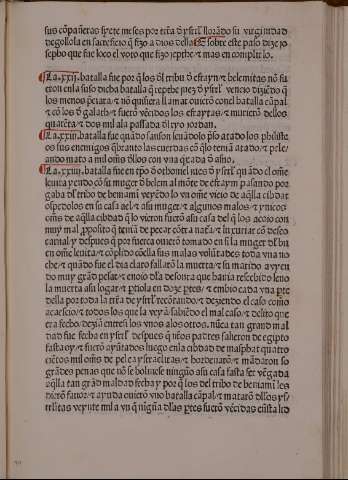 sus cõpañeras syete meses por trña d'ysrl' llorãdo su virginidad
degollola en sacreficio q̃ fizo a dios della ¶ E sobre este paso dize jo
sepho que fue loco el voto que fizo jepthe ⁊ mas en complir lo.
¶ La .xxij. batalla fue por q̃ los d'l tribu d' efrayn ⁊ belemitas nõ fu
eron en la suso dicha batalla q̃ jepthe juez d'ysrl' vencio diziẽdo q̃
los menos preciara ⁊ nõ quisiera llamar ouierõ conel batalla cãpal
⁊ cõ los d' galath ⁊ fuerõ vẽcidos los efraytas ⁊ murierõ dellos
quarẽta ⁊ dos mil a la passada d'l ryo jordan.
¶ La .xxiij. batalla fue quãdo sanson leuãdolo p̃so atado los philiste
os sus enemigos q̃branto las cuerdas cõ q̃ lo teniã atado ⁊ pele
ando mato a mil om̃s d'llos con vna q̃xada d' asno.
¶ La .xxiiij. batalla fue en tp̃o d' othoniel jues d'ysrl' quãdo el om̃e
leuita yendo cõ su muger d' belem al mõte de efraym pasando por
gaba d'l tribo de beniami veyẽdo lo vn om̃e viejo de aq̃lla cibdat
ospedolos en su casa a el ⁊ a su muger ⁊ algunos malos ⁊ ynicos
om̃s de aq̃lla cibdad q̃ lo vieron fuerõ a su casa del q̃ los acojo con
muy mal p̃posito q̃ teniã de pecar cõtra natã ⁊ luxuriar cõ desco
canial y despues q̃ por fuerca ouierõ tomado en sí la muger d'l bu
en om̃e leuita ⁊ cõplido cõ ella sus malas volũtades toda vna no
che ⁊ quãdo fue el dia claro fallarõ la muerta ⁊ su marido auyen
do muy grãd pesar ⁊ enojo d'la desonrra que hauia rescebido leuo
la muerta a su logar ⁊ p̃tiola en doze p̃tes ⁊ embio cada vna p̃te
della por toda la trr̃a de ysrl' recõtando ⁊ deziendo el caso como
acaescio ⁊ todos los que la veyã sabiẽdo el mal caso ⁊ delito que
era fecho dezíã entre si los vnos a los otros. nũca tan grand mal
dad fue fecha en ysrl' despues q̃ nr̃os padres salieron de egipto
fasta oy ⁊ fuerõ ayũtados luego en la cibdad de masphat quatro
ciẽtos mil om̃s de pelea ysraelitas ⁊ hordenarõ ⁊ mãdaron so
grãdes penas que nõ se boluiese ningũo a su casa fasta ser vẽgada
aq̃lla tan grãd maldad fecha y por q̃ los del tribo de beniami les
dierõ fauor ⁊ ayuda ouierõ vna batalla cãpal ⁊ matarõ d'llos ys/
rlitas veynte mil a vn q̃ nigũa d'las p̃tes fuerõ vẽcidas en esta lid